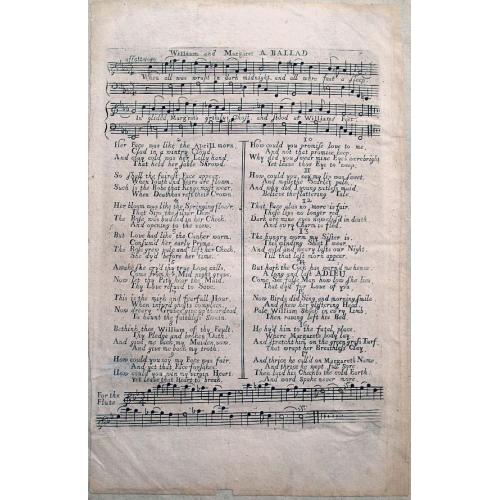 William and Margaret A BALLAD
affetuoso
When all was wrapt in dark midnight, and all were fast a sleep,
In glided Margrets grimly Ghost, and stood at Williams Feet.
Her Face was like the Aprill morn
Clad in a wintry Cloud
And clay cold was her Lilly hand
That held her sable Shrowd.
So shall the fairest Face appear
When Youth and Years are flown
Such is the Robe that Kings must wear
When Death has reft their Crown.
4
Her bloom was like the Springing flow'r
That Sips the Silver Dew
The Rose was budded in her Cheek
And opening to the view.
But Love had like the Canker worm
Consum'd her early Prime
The Rose grew pale and left her Cheek
She dy'd before her time.
Awake she cry'd thy True Love calls
Come from her Mid night grave
Now let thy Pity hear the Maid
Thy Love refus'd to Save.
This is the mirk and fearfull Hour
When injur'd ghosts complain
Now dreary Graves give up their dead
To haunt the faithless Swain.
8
Bethink thee William of thy Fault
Thy Pledge and broken Oath
And give me back my Maiden vow
And give me back my troth.
How could you say my Face was fair
And yet that Face forsake
How could you win my virgin Heart
Yet leave that Heart to break.
10
How could you promise love to me
And not that promise keep
Why did you swear mine Eyes were bright
Yet leave those Eyes to weep.
11
How could you say my lip was sweet
And made the Scarlet pale
And why did I young witless maid
Believe the flattering Tale.
12
That Face alas no more is fair
These lips no longer red
Dark are mine eyes now clos'd in death
And every Charm is fled.
13
The hungry worm my Sister is
This winding Sheet I wear
And cold and weary lasts our Night
Till that last morn appear.
14
But hark the Cock has warn'd me hence
A long and last ADIEU
Come See false Man how low she lies
That dy'd for Love of you.
Now Birds did Sing and morning smile
And shew her glittering Head
Pale William Shook in ev'ry limb
Then raving left his Bed.
16
He hy'd him to the fatal place
Where Margarets body lay
And stretch'd him on the green grass Turf
That wrapt her Breathless Clay
17
And thrice he call'd on Margarets Name
And thrice he wept full Sore
Then laid his Cheek to the cold Earth
And word Spoke never more.
For the
Flute